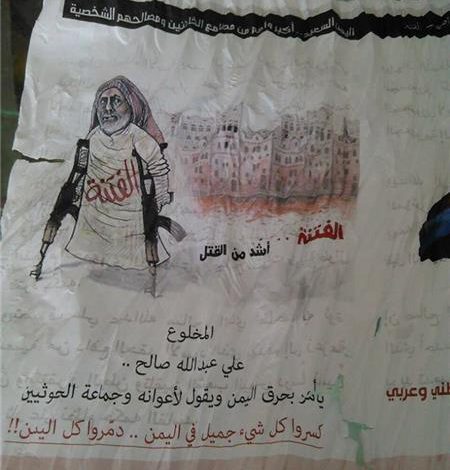 اليمن السعيد.. أكبر وأهم من مطامع الخائنين ومصالحهم الشخصية
الفتنة
الفتنة ..
أشد من القتل
المخلوع
علي عبدالله صالح ..
يأمر بحرق اليمن ويقول لأعوانه وجماعة الحوثيين
كسروا كل شيء جميل في اليمن .. دمّروا كل اليمن!!
طني وعربي